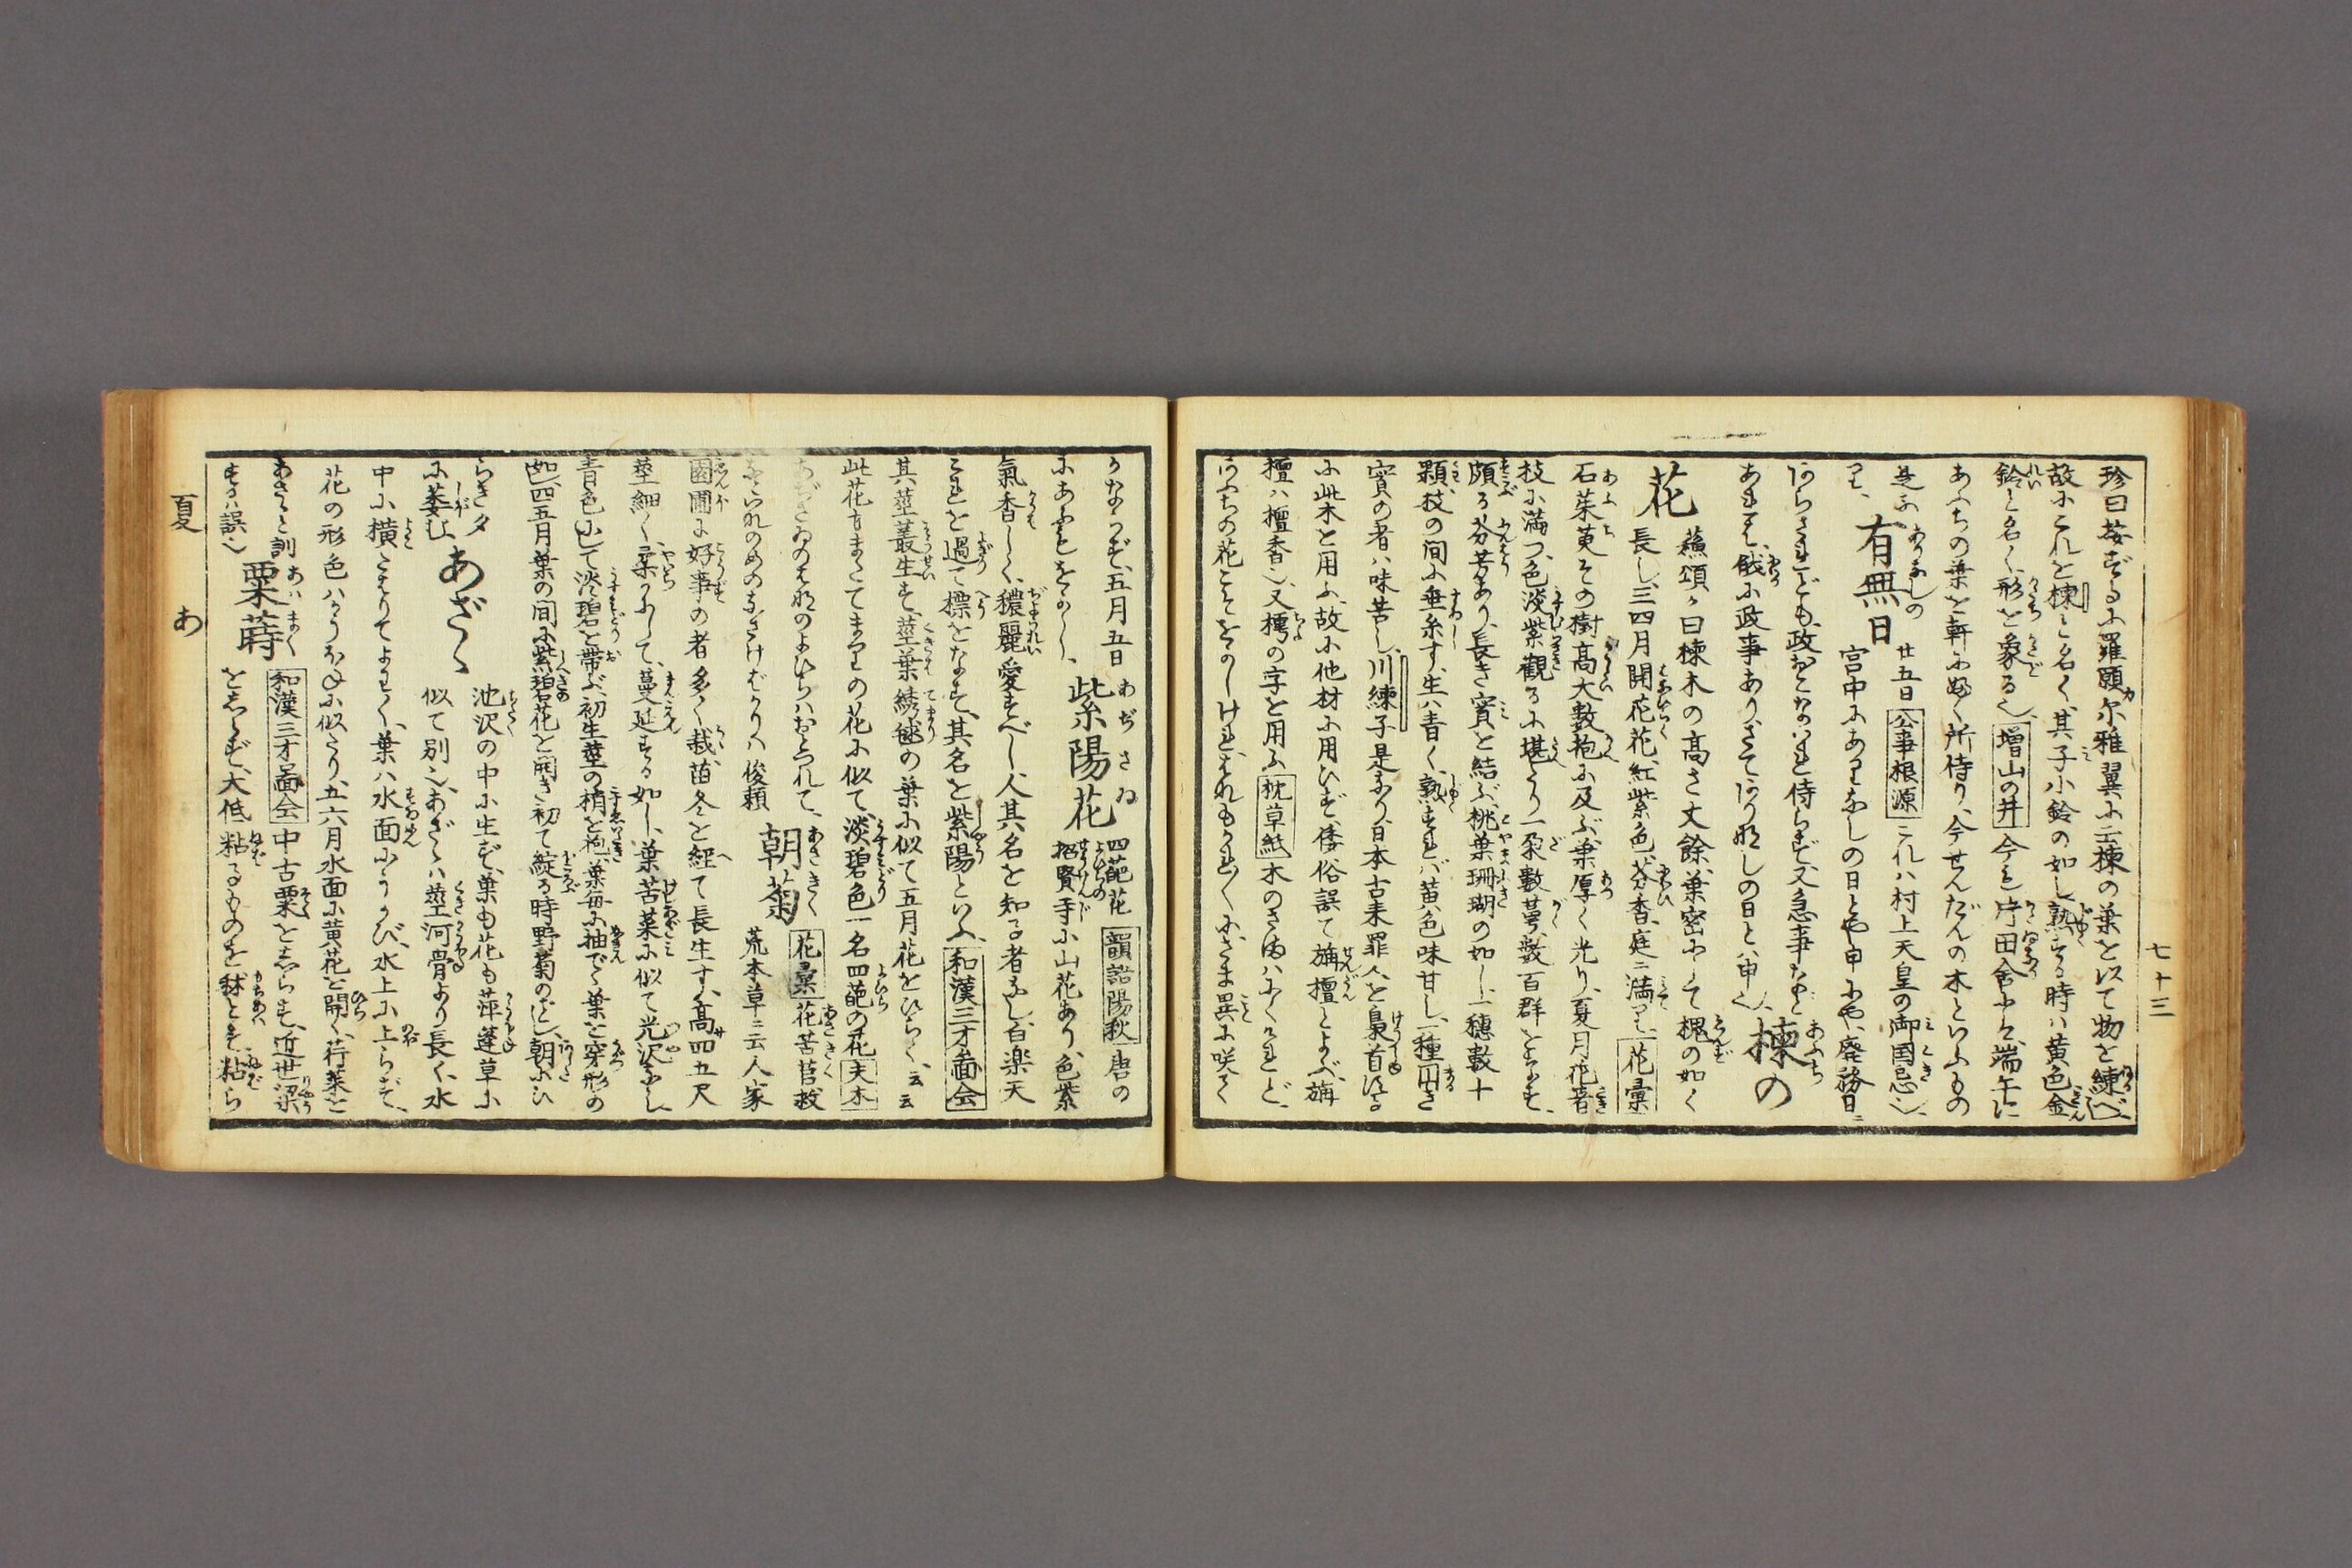 七十三
珍曰按ずるに羅願尓雅翼に云楝の葉を以て物を練べし
故にこれを楝と名く其子小鈴の如し熟する時ハ黄色金
鈴と名く形を象る也増山の井今も片田舎にハ端午に
あふちの葉を軒にふく所侍り今せんだんの木といふもの
是也
有無日
廿五日公事根源これハ村上天皇の御国忌也
宮中にありなしの日とや申にや廃務日ニ
あらされども政おこなハれ侍らず又急事など
あれば俄に政事ありさてありなしの日とハ申也
楝の
花
蘓頌曰楝木の高さ丈餘葉密にして槐の如く
長し三四月開花花紅紫色芬香庭ニ満つ花彙
石茱萸その樹高大數抱に及ぶ葉厚く光り夏月花着
枝に満つ色淡紫觀るに堪たり一朶數萼數百群をなす
頗る芬芳あり長き實を結ぶ桃葉珊瑚の如し一穂數十
顆枝の间に垂糸す生ハ青く熟すれバ黄色味甘し一種円き
實の者ハ味苦し川楝子是なり日本古来罪人を梟首する
に此木を用ふ故に他材に用ひず倭俗誤て旃檀とよぶ旃
檀ハ檀香也又樗の字を用ふ枕草紙木のさまハにくけれど
あふちの花こそをかしけれかれがれにさま異に咲て
かならず五月五日
にあふもをかし
紫陽花
四葩花韻語陽秋唐の
招賢寺に山花あり色紫
氣香しく穠麗愛すべし人其名を知る者なし白楽天
これを過て標をなす其名を紫陽といふ和漢三才圖会
其莖叢生す莖葉綉毬の葉に似て五月花をひらく云云
此花もまたてまりの花に似て淡碧色一名四葩の花夫木
あぢさゐの花のよひらハおとづれて
なといのめのなさけばかりハ俊頼
朝菊
花彙花苦苣救
荒本草ニ云人家
園圃に好事の者多く栽苗冬を経て長生す高サ四五尺
莖細く柔かにして蔓延する如し葉苦菜に似て光沢なし
青色にして淡碧を帯ぶ初生莖の梢を抱葉毎に抽でゝ葉を穿形の
如四五月葉の间に紫碧花を開き初て綻る時野菊のごとし朝にひ
らき夕
に萎む
あざゝ
池沢の中に生ず葉も花も萍蓬草に
似て別也あざゝハ莖河骨より長く水
中に横たはりてよはく葉ハ水面にうかび水上に上らず
花の形色ハかうほねに似たり五六月水面に黄花を開く荇菜を
あさゝと訓
するハ誤也
粟蒔
和漢三才圖会中古粟を志らす近世粱
をしらず大低粘るものを秫とす粘ら
夏　あ